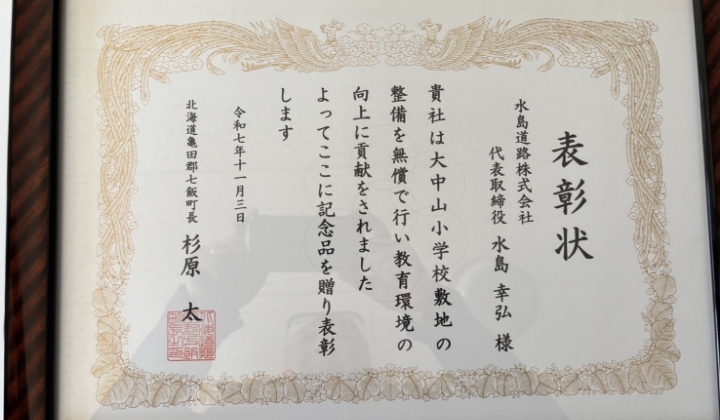 表彰状
水島道路株式会社
代表取締役 水島 幸弘 様
貴社は大中山小学校敷地の
整備を無償で行い教育環境の
向上に貢献をされました
よってここに記念品を贈り表彰
します
令和七年十一月三日
北海道亀田郡七飯町長 杉原 太